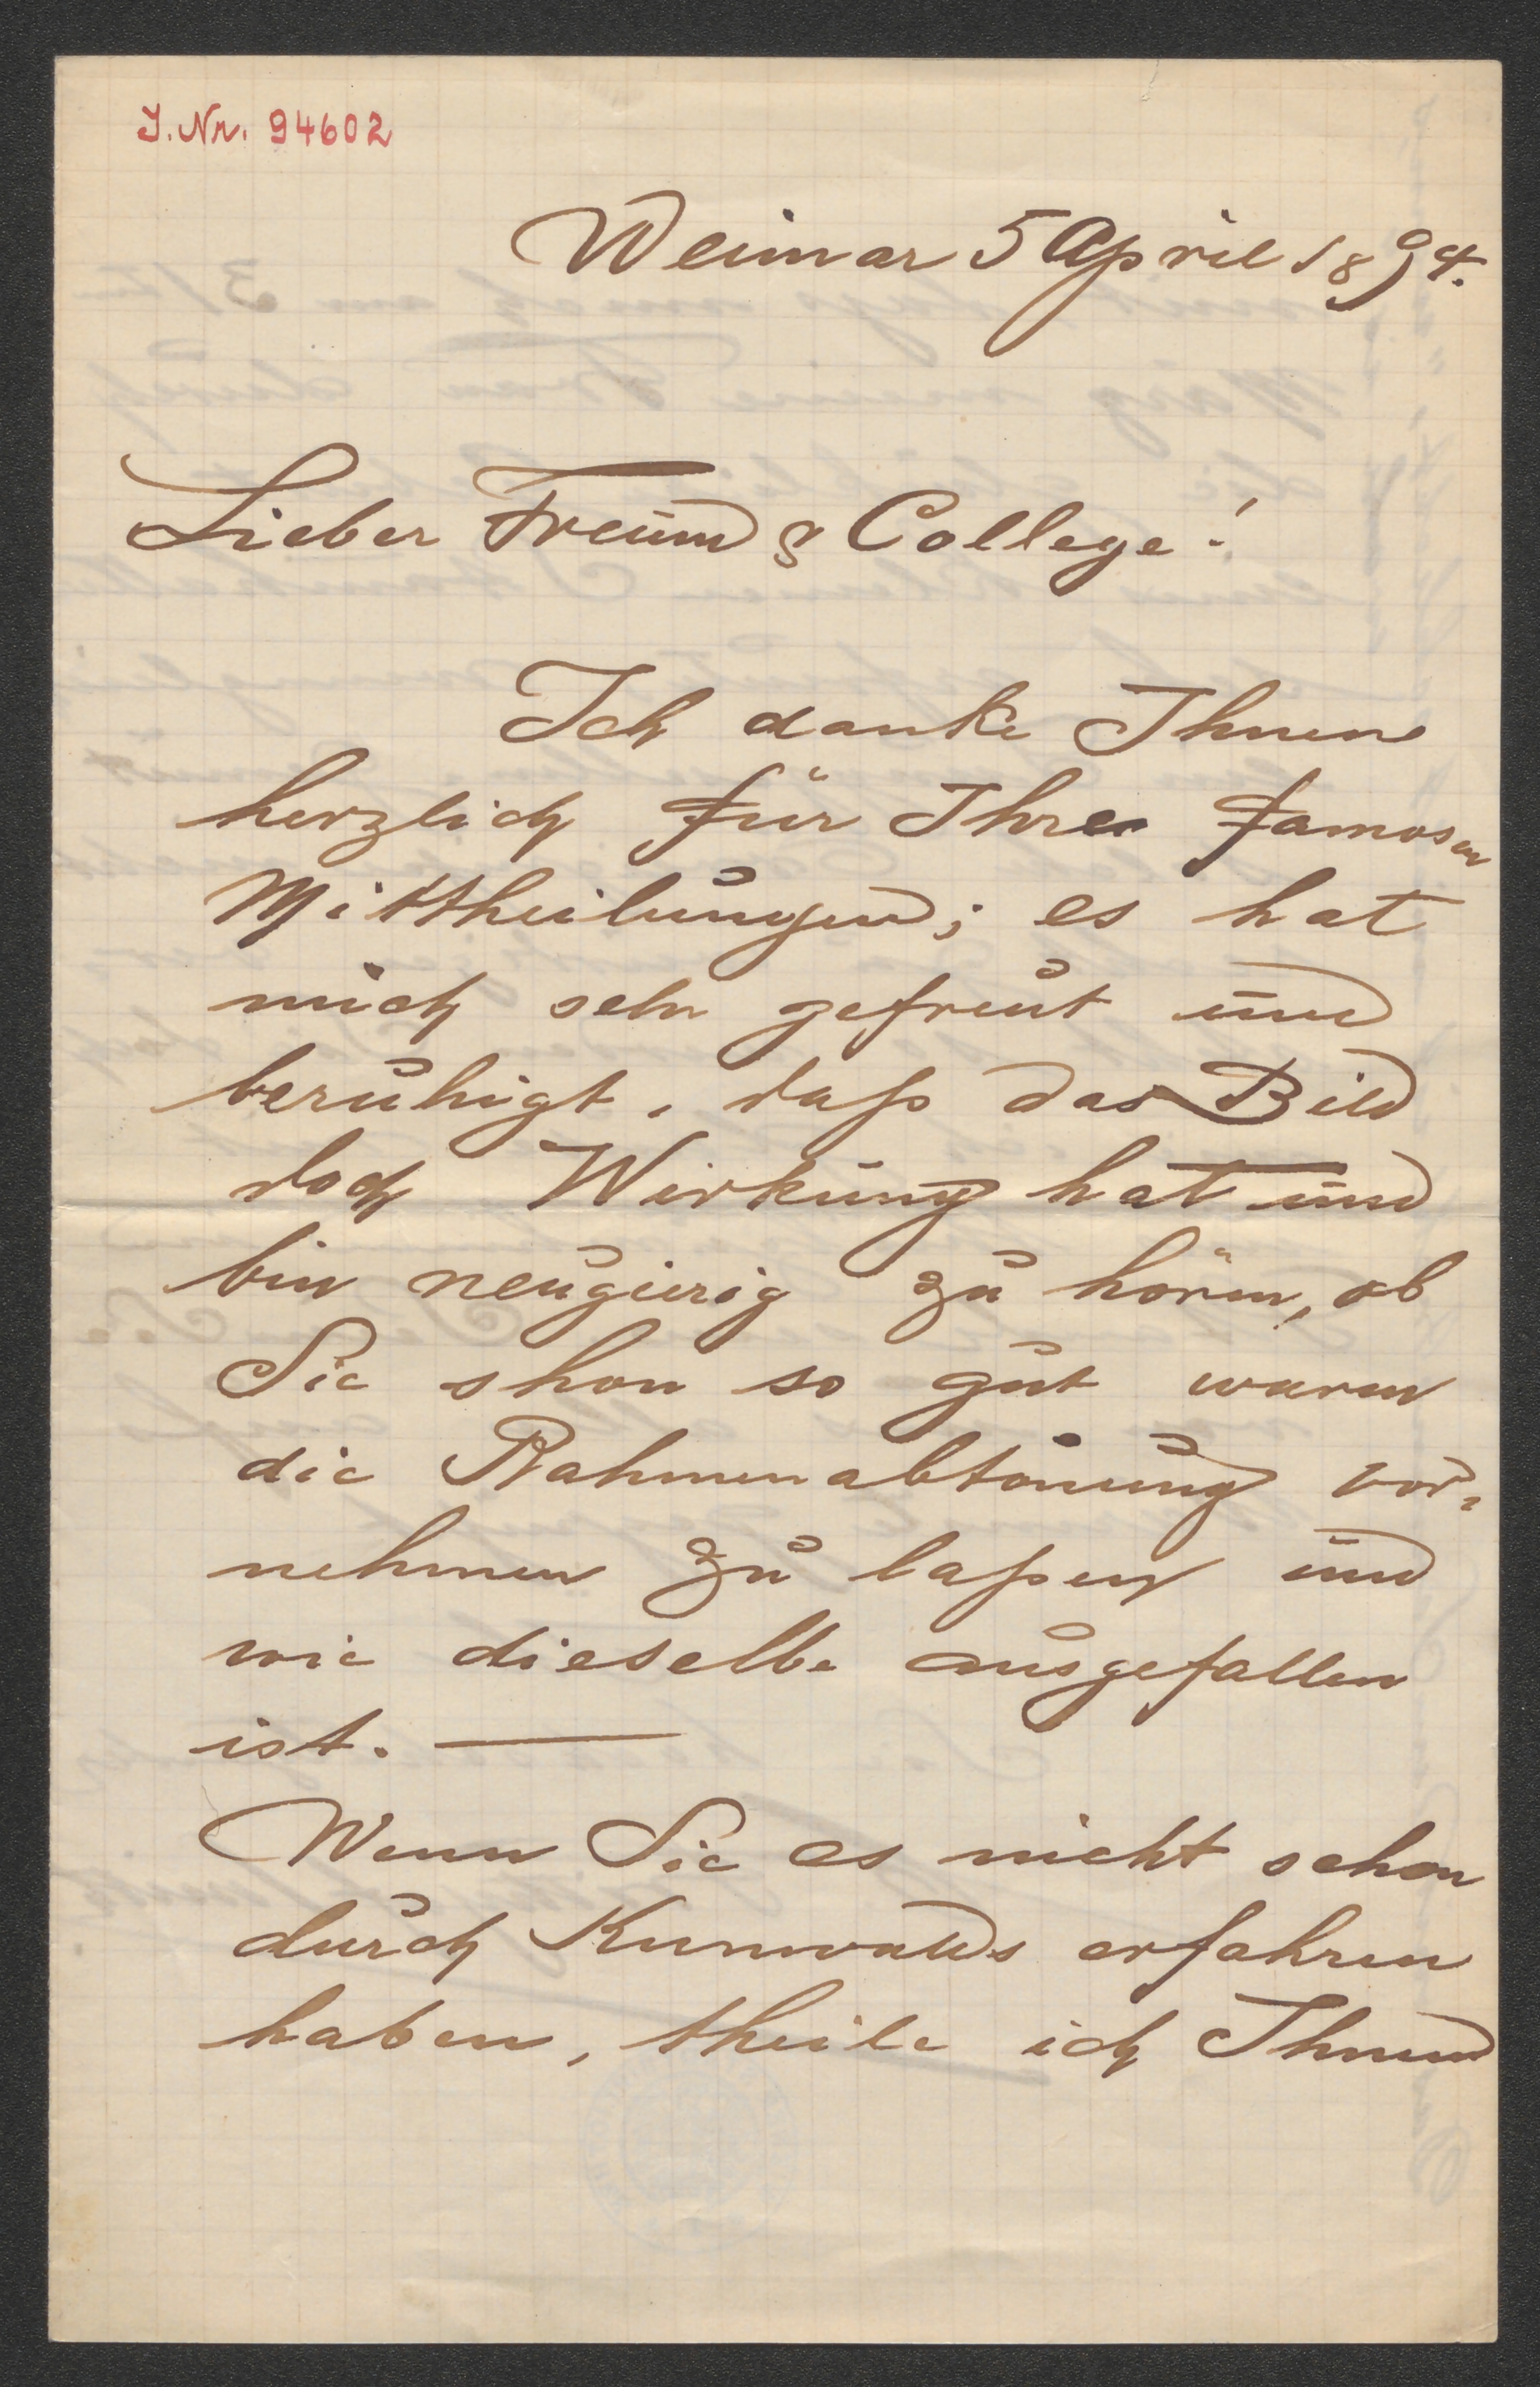 J. Nr. 94602
Weimar 5 April 1894.
Lieber Freund & College!
Ich danke Ihnen
herzlich für Ihre famosen
Mittheilungen; es hat
mich sehr gefreut und
beruhigt, daß das Bild
doch Wirkung hat und
bin neugierig zu hören, ob
Sie shon so gut waren
die Rahmenabtönung vor-
nehmen zu laßen und
wie dieselbe ausgefallen
ist. —
Wenn Sie es nicht schon
durch Kunwalds erfahren
haben, theile ich Ihnen